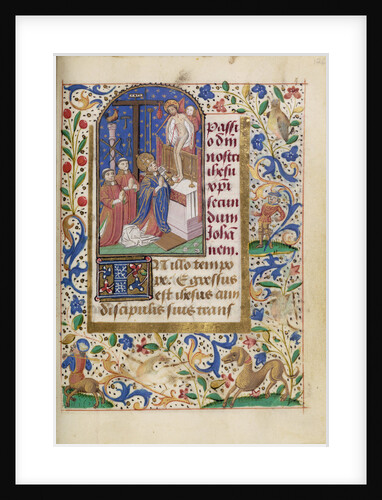 Passi
o dni
nostri
ihesu
xpi
secun
dum
Joha
nnem.
IN illo tempo
re. Egressus
est ihesus cum
discipulis suis trans